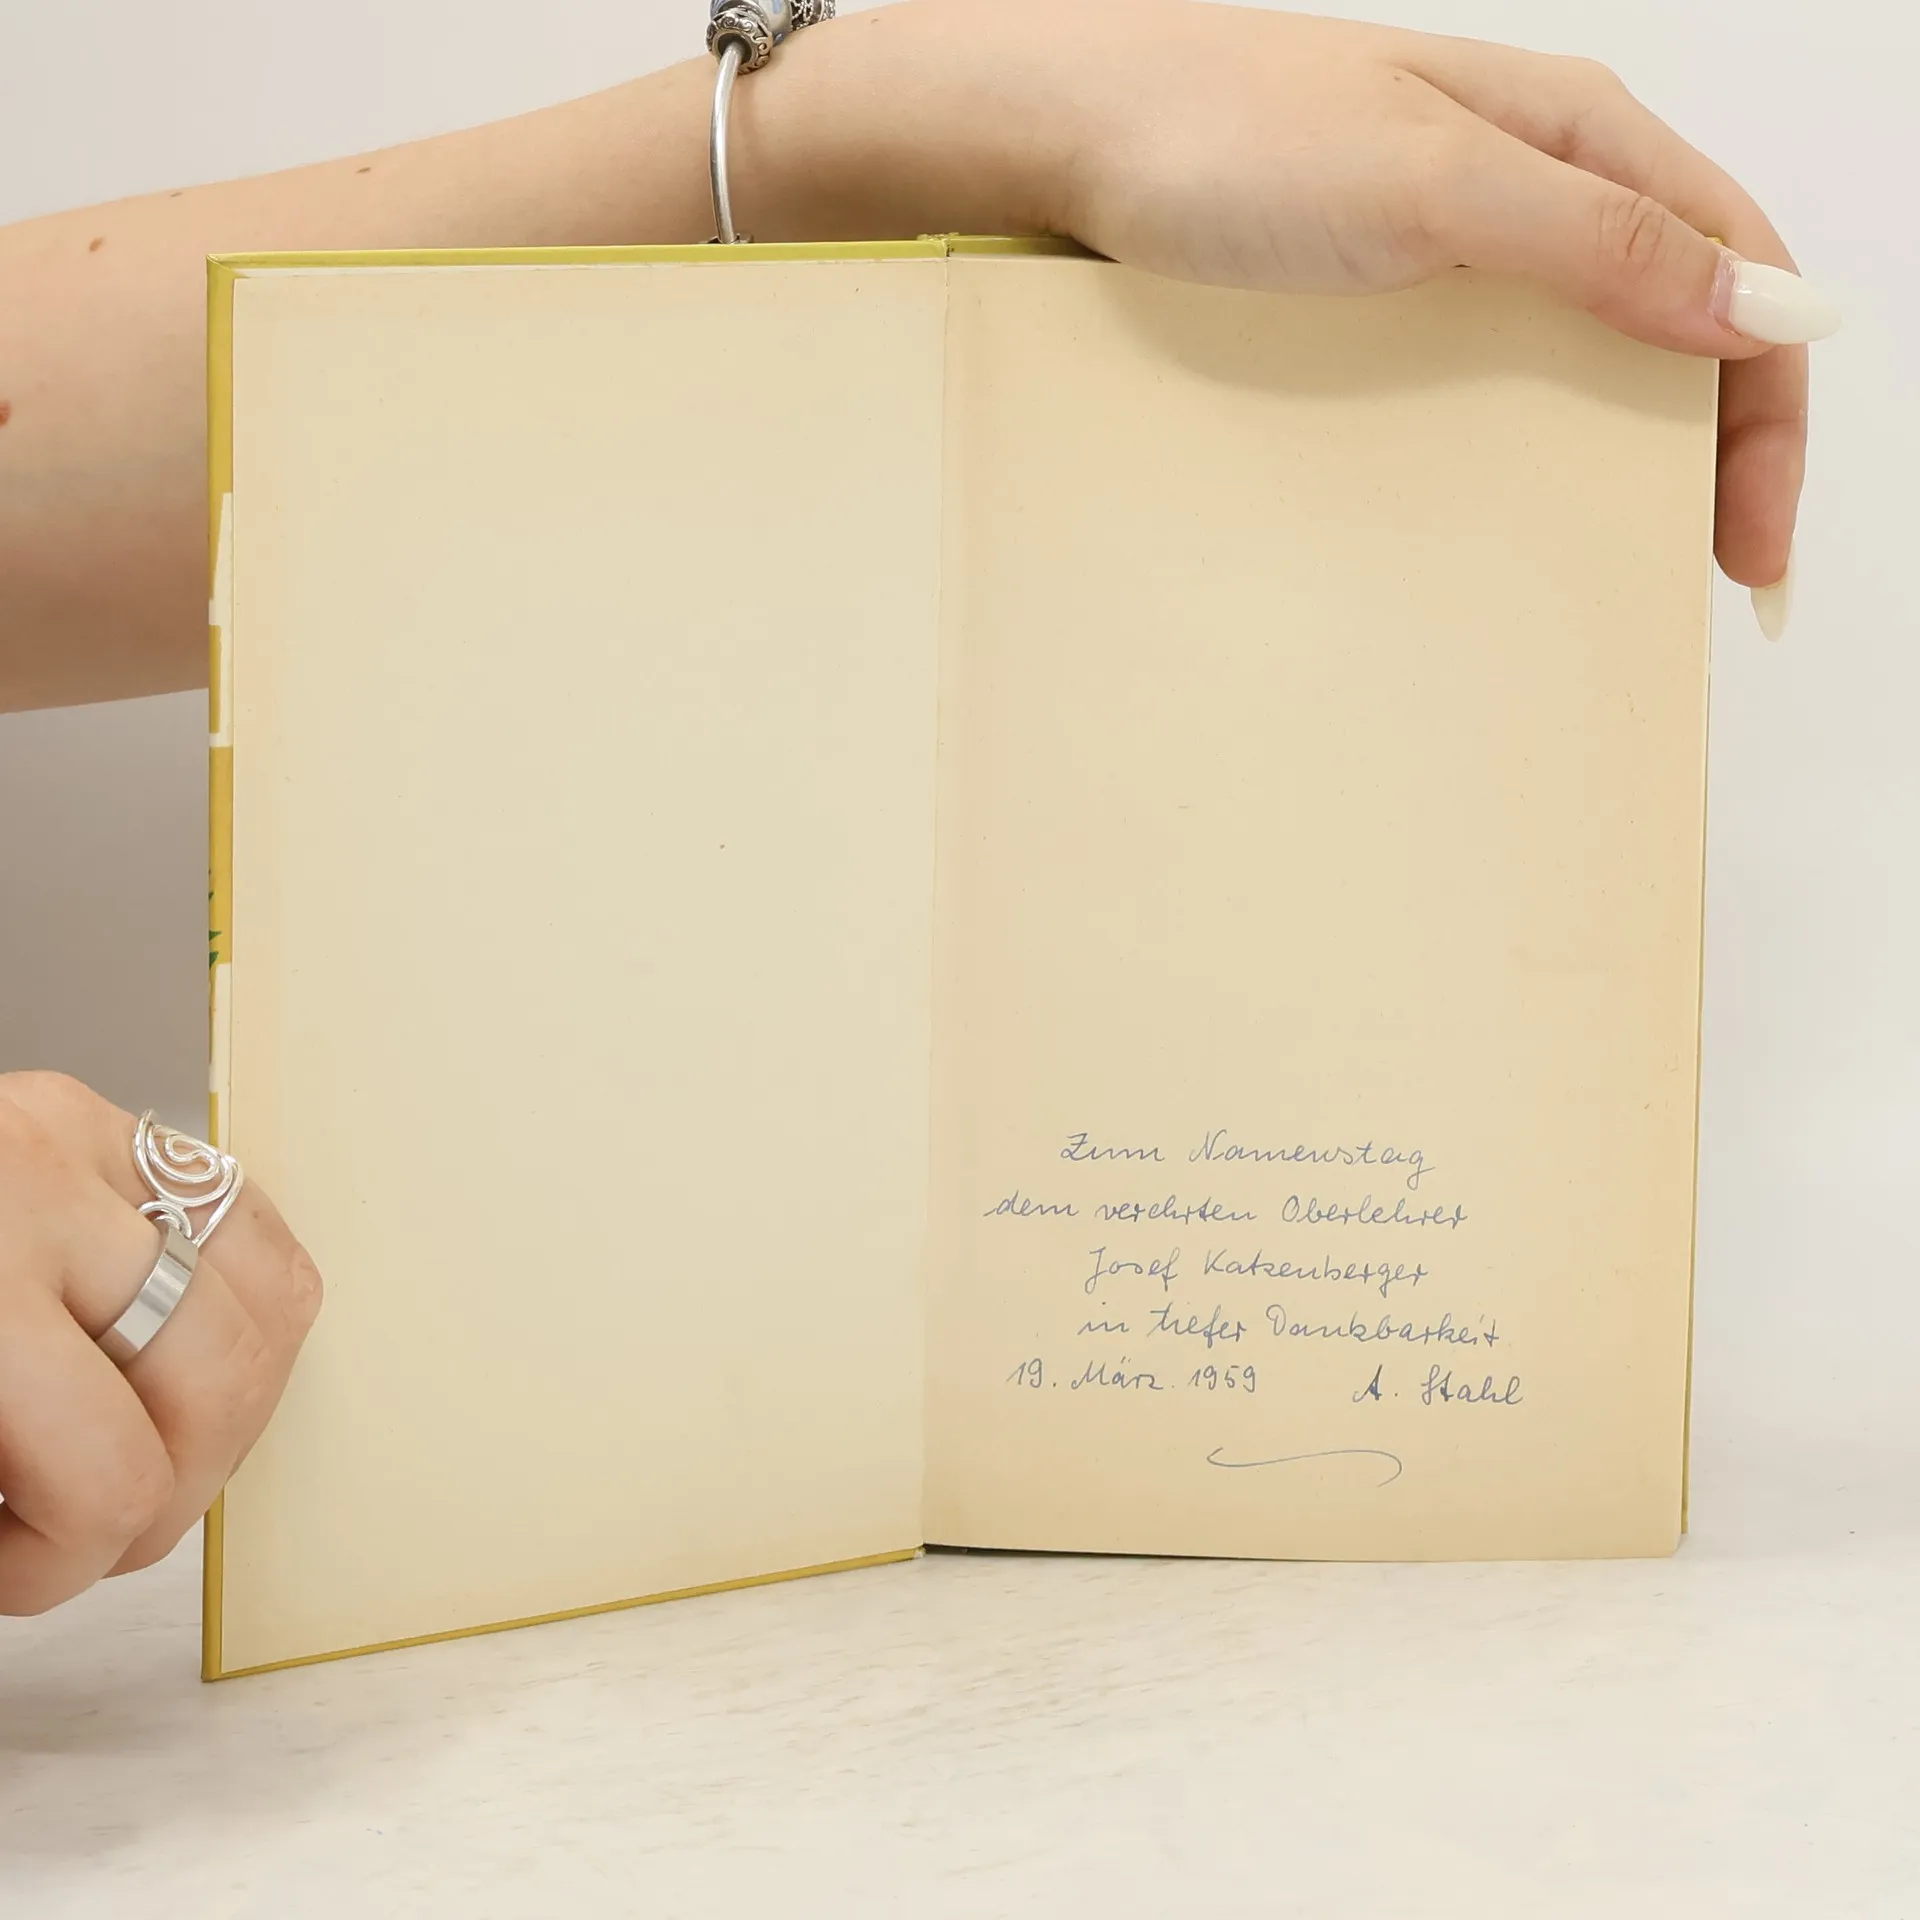 Zum Namenstag
dem verehrten Oberlehrer
Josef Katzenberger
in tiefer Dankbarkeit
19. März. 1959 A. Stahl